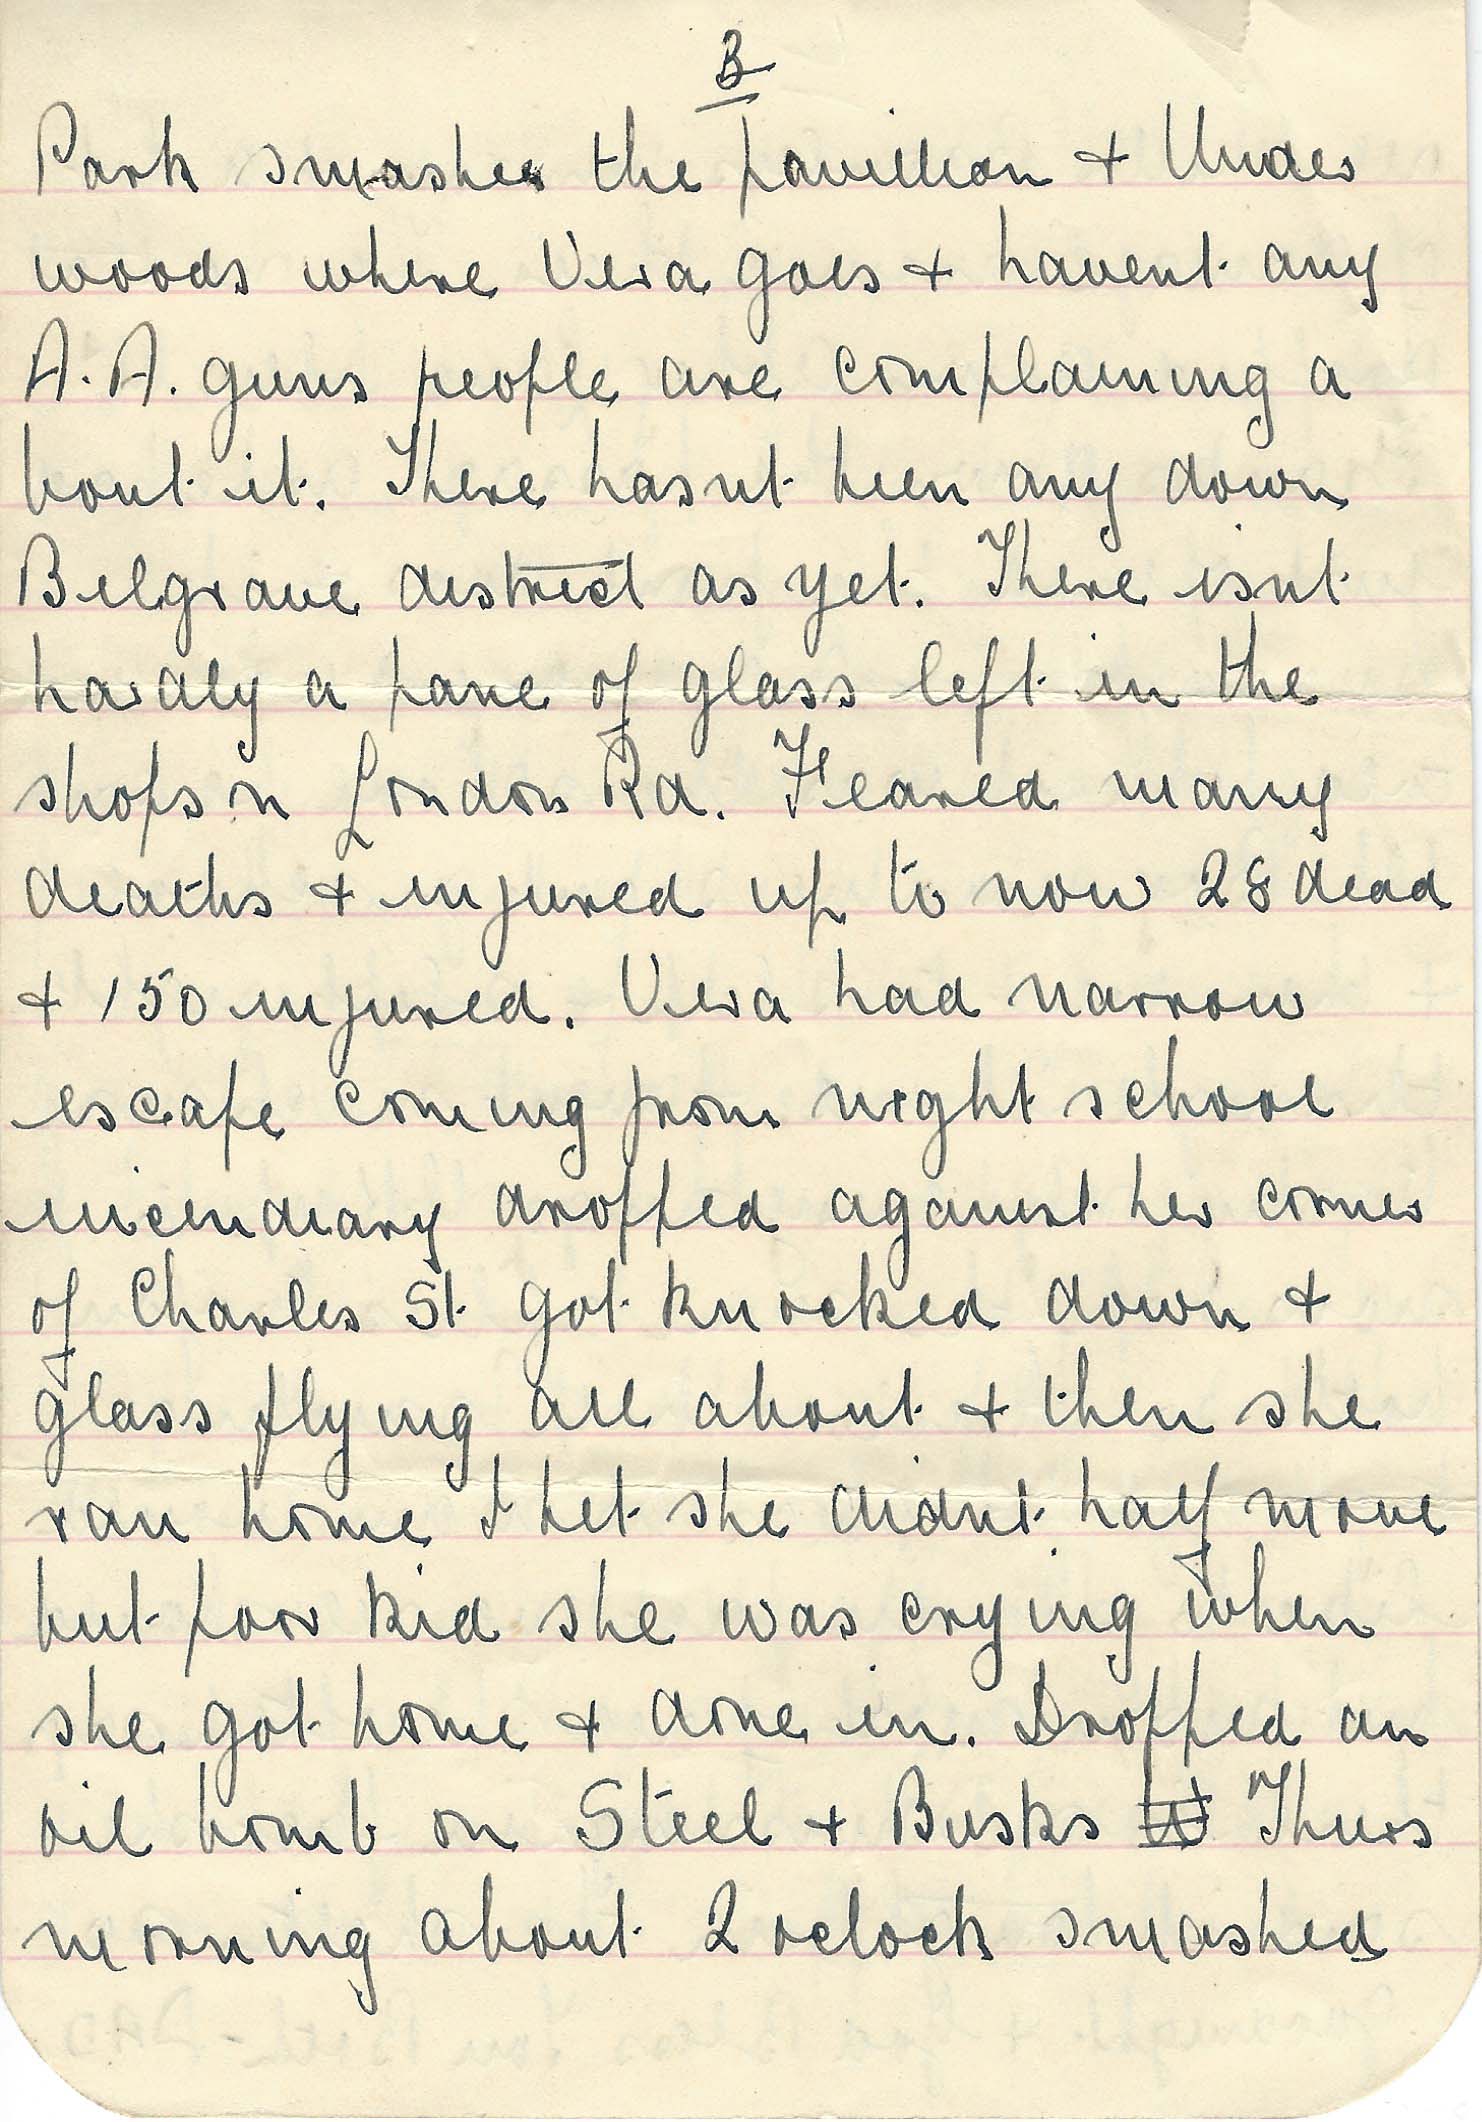 B
Park smashed the pavillion + Under
woods where Vera goes + havent any
A.A. guns people are complaining a
bout it. There hasnt been any down
Belgrave district as yet. There isnt
hardly a pane of glass left in the
shops in London Rd. Feared many
deaths + injured up to now 28 dead
+ 150 injured. Vera had narrow
escape coming from night school
incendiary dropped against her corner
of Charles St got knocked down +
glass flying all about + then she
ran home I bet she didnt half move
but poor kid she was crying when
she got home + done in. Dropped an
oil bomb on Steel + Busks Thurs
morning about 2 oclock smashed